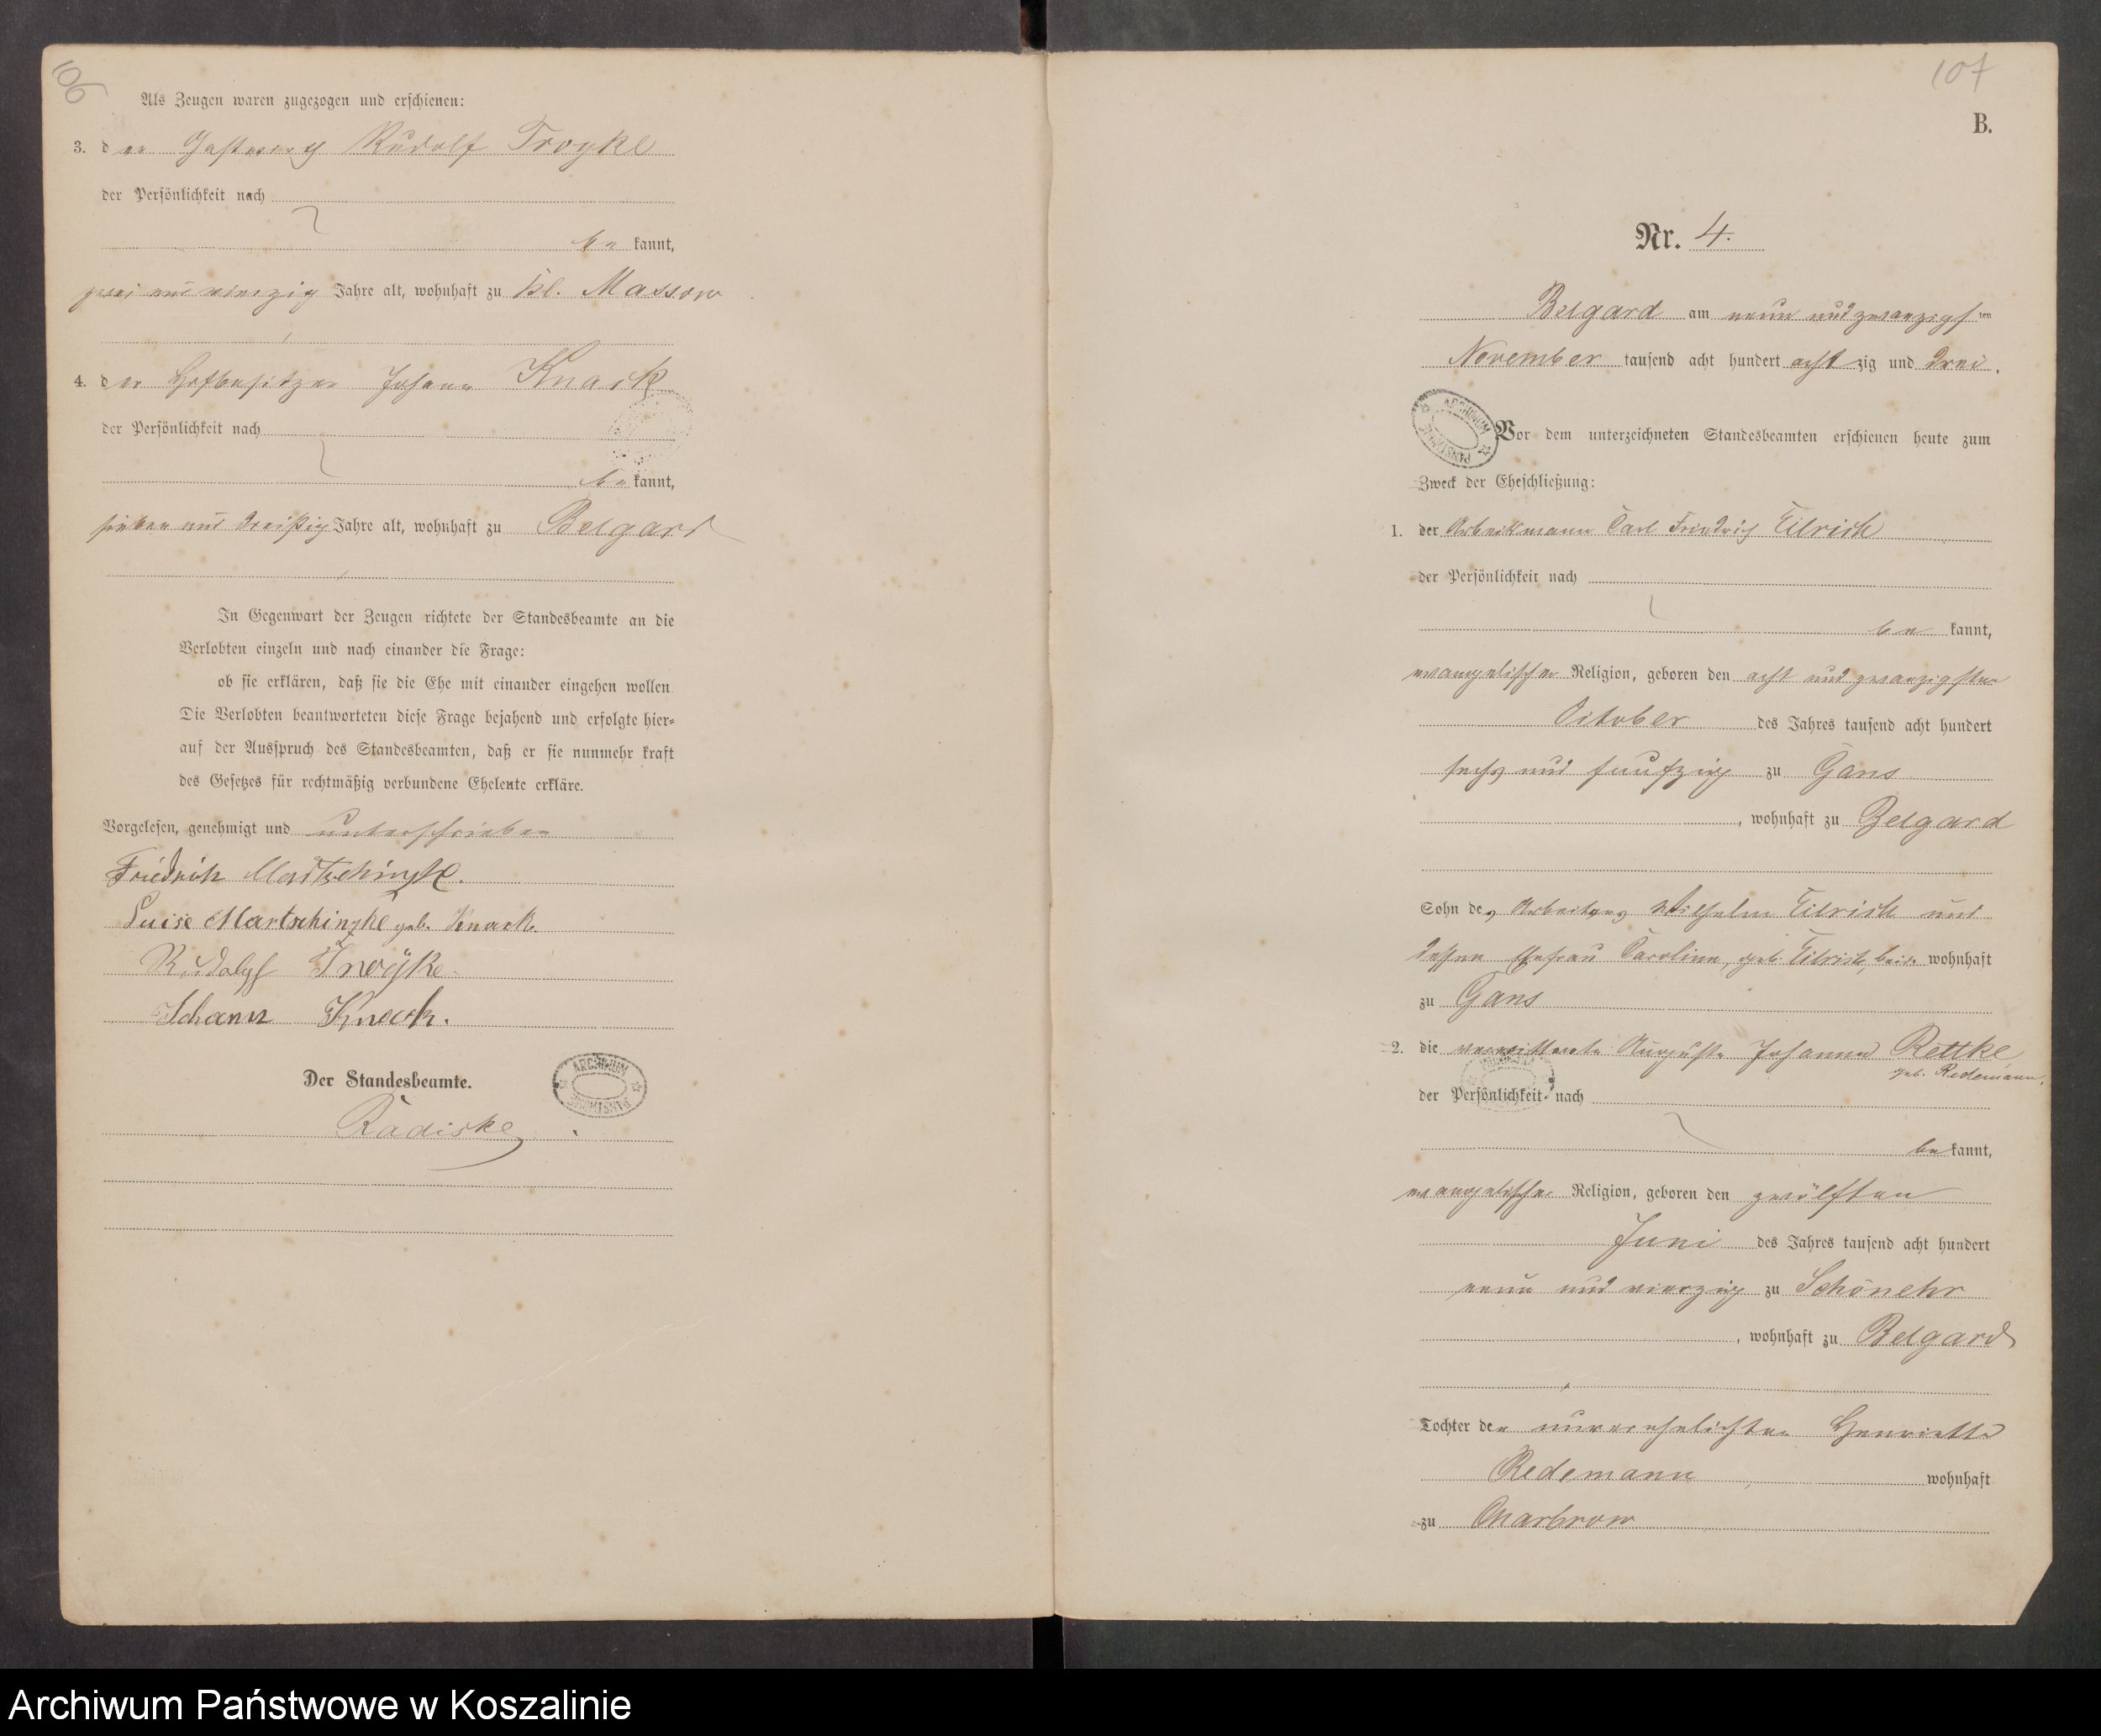 106
Als Zeugen waren zugezogen und erschienen:
3. der Gastwirth Rudolf Troyke
der Persönlichkeit nach
be kannt,
zwei und vierzig Jahre alt, wohnhaft zu Kl. Massow
4. der Hofbesitzer Johann Knack
der Persönlichkeit nach
be kannt,
sieben und dreißig Jahre alt, wohnhaft zu Belgard
In Gegenwart der Zeugen richtete der Standesbeamte an die
Verlobten einzeln und nach einander die Frage:
ob sie erklären, daß sie die Ehe mit einander eingehen wollen
Die Verlobten beantworteten diese Frage bejahend und erfolgte hier=
auf der Ausspruch des Standesbeamten, daß er sie nunmehr kraft
des Gesetzes für rechtmäßig verbundene Eheleute erkläre.
Vorgelesen, genehmigt und unterschrieben
Friedrich Martschinzke.
Luise Martschinzke geb. Knack.
Rudolph Troÿke.
Johann Knack.
Der Standesbeamte.
ARCHIWUM PAŃSTWOWE
Radiske
107
B.
Nr. 4.
Belgard am neun und zwanzigs ten
November tausend acht hundert acht zig und drei.
ARCHIWUM PAŃSTWOWE
Vor dem unterzeichneten Standesbeamten erschienen heute zum
Zweck der Eheschließung:
1. der Arbeitsmann Carl Friedrich Eilrich
der Persönlichkeit nach
be kannt,
evangelischer Religion, geboren den acht und zwanzigsten
October des Jahres tausend acht hundert
sechs und funfzig zu Gans
, wohnhaft zu Belgard
Sohn des Arbeiters Wilhelm Eilrich und
dessen Ehefrau Caroline, geb. Eilrich, beide wohnhaft
zu Gans
2. die verwittwete Auguste Johanna Rettke
geb. Redemann,
der Persönlichkeit nach
be kannt,
evangelischer Religion, geboren den zwölften
Juni des Jahres tausend acht hundert
neun und vierzig zu Schönehr
, wohnhaft zu Belgard
Tochter der unverehelichten Henriette
Redemann wohnhaft
zu Charbrow
Archiwum Państwowe w Koszalinie